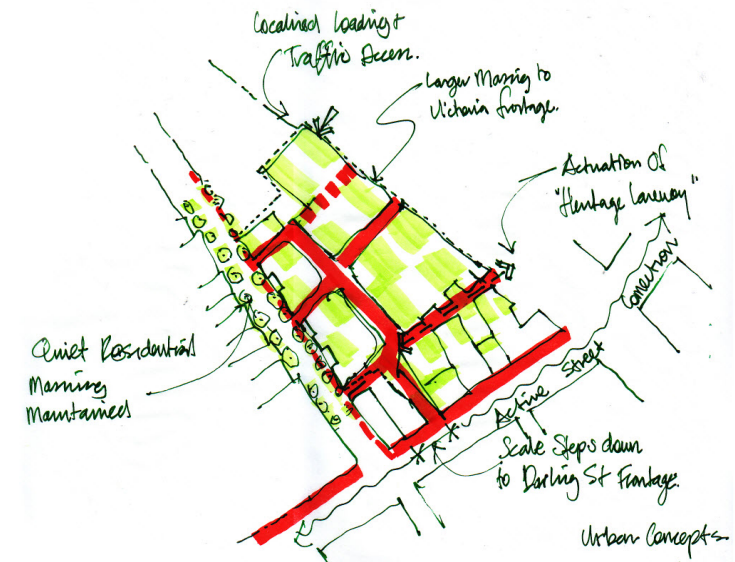 Localised Loading &
Traffic Access.
Larger Massing to
Victoria frontage.
Activation Of
"Heritage Laneway"
Connection
Quiet Residential
Massing
Maintained
Active Street
Scale Steps down
to Darling St Frontage.
Urban Concepts